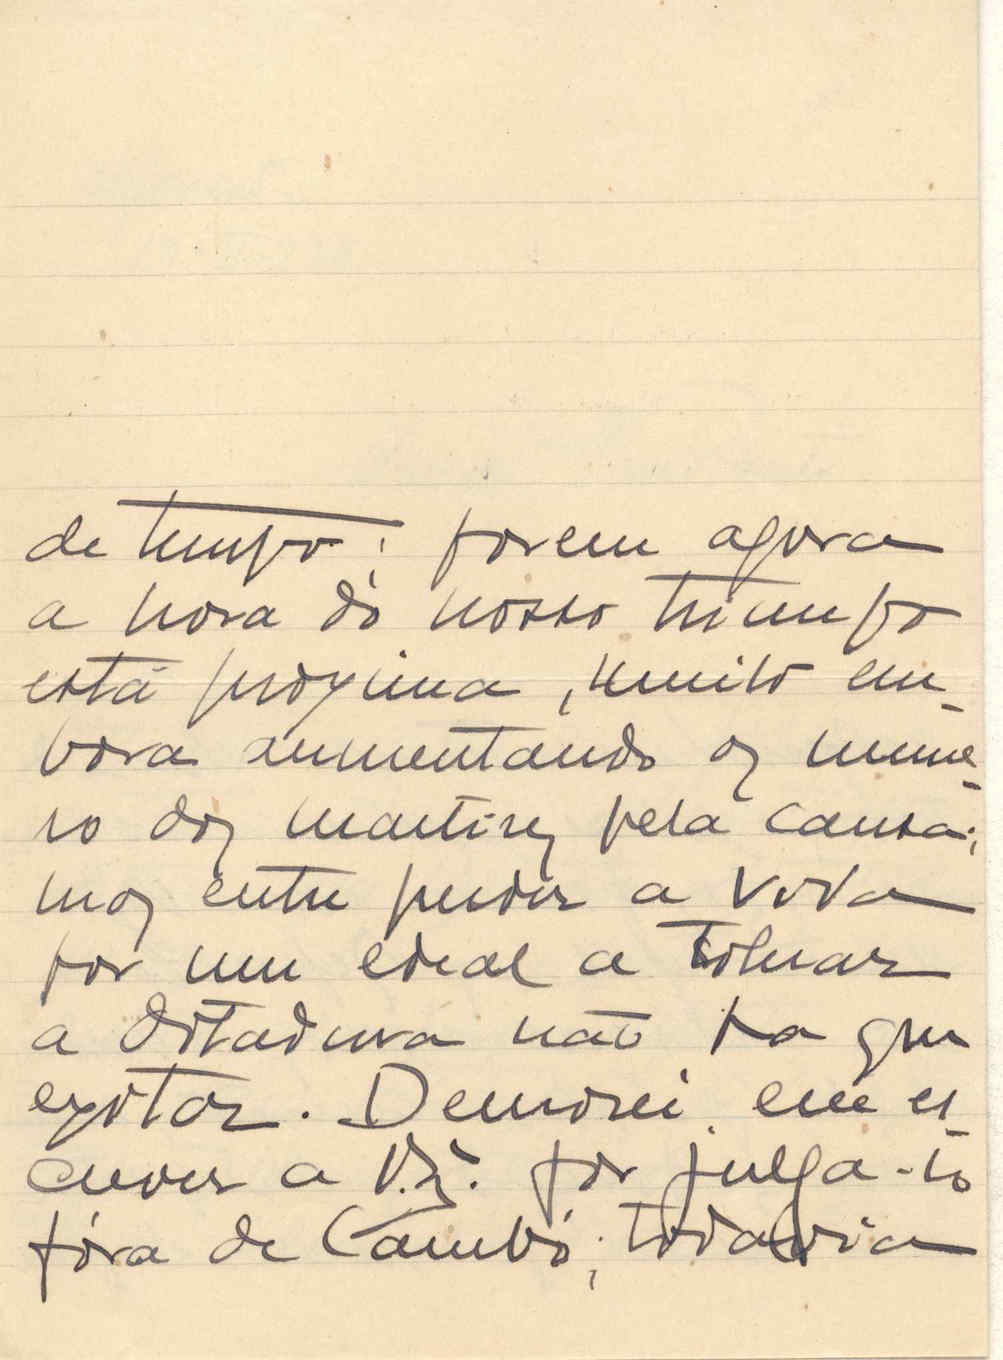 de tempo; porem agora
a hora do nosso triumpo
está proxima, muito em-
bora aumentando os nume-
ro dos martires pela causa;
mas entre perder a vida
por um edeal a
a ditadura não ha que
exitar. Demorei em es-
crever a V.S. por julga-lo
fóra de Cambó; todavia